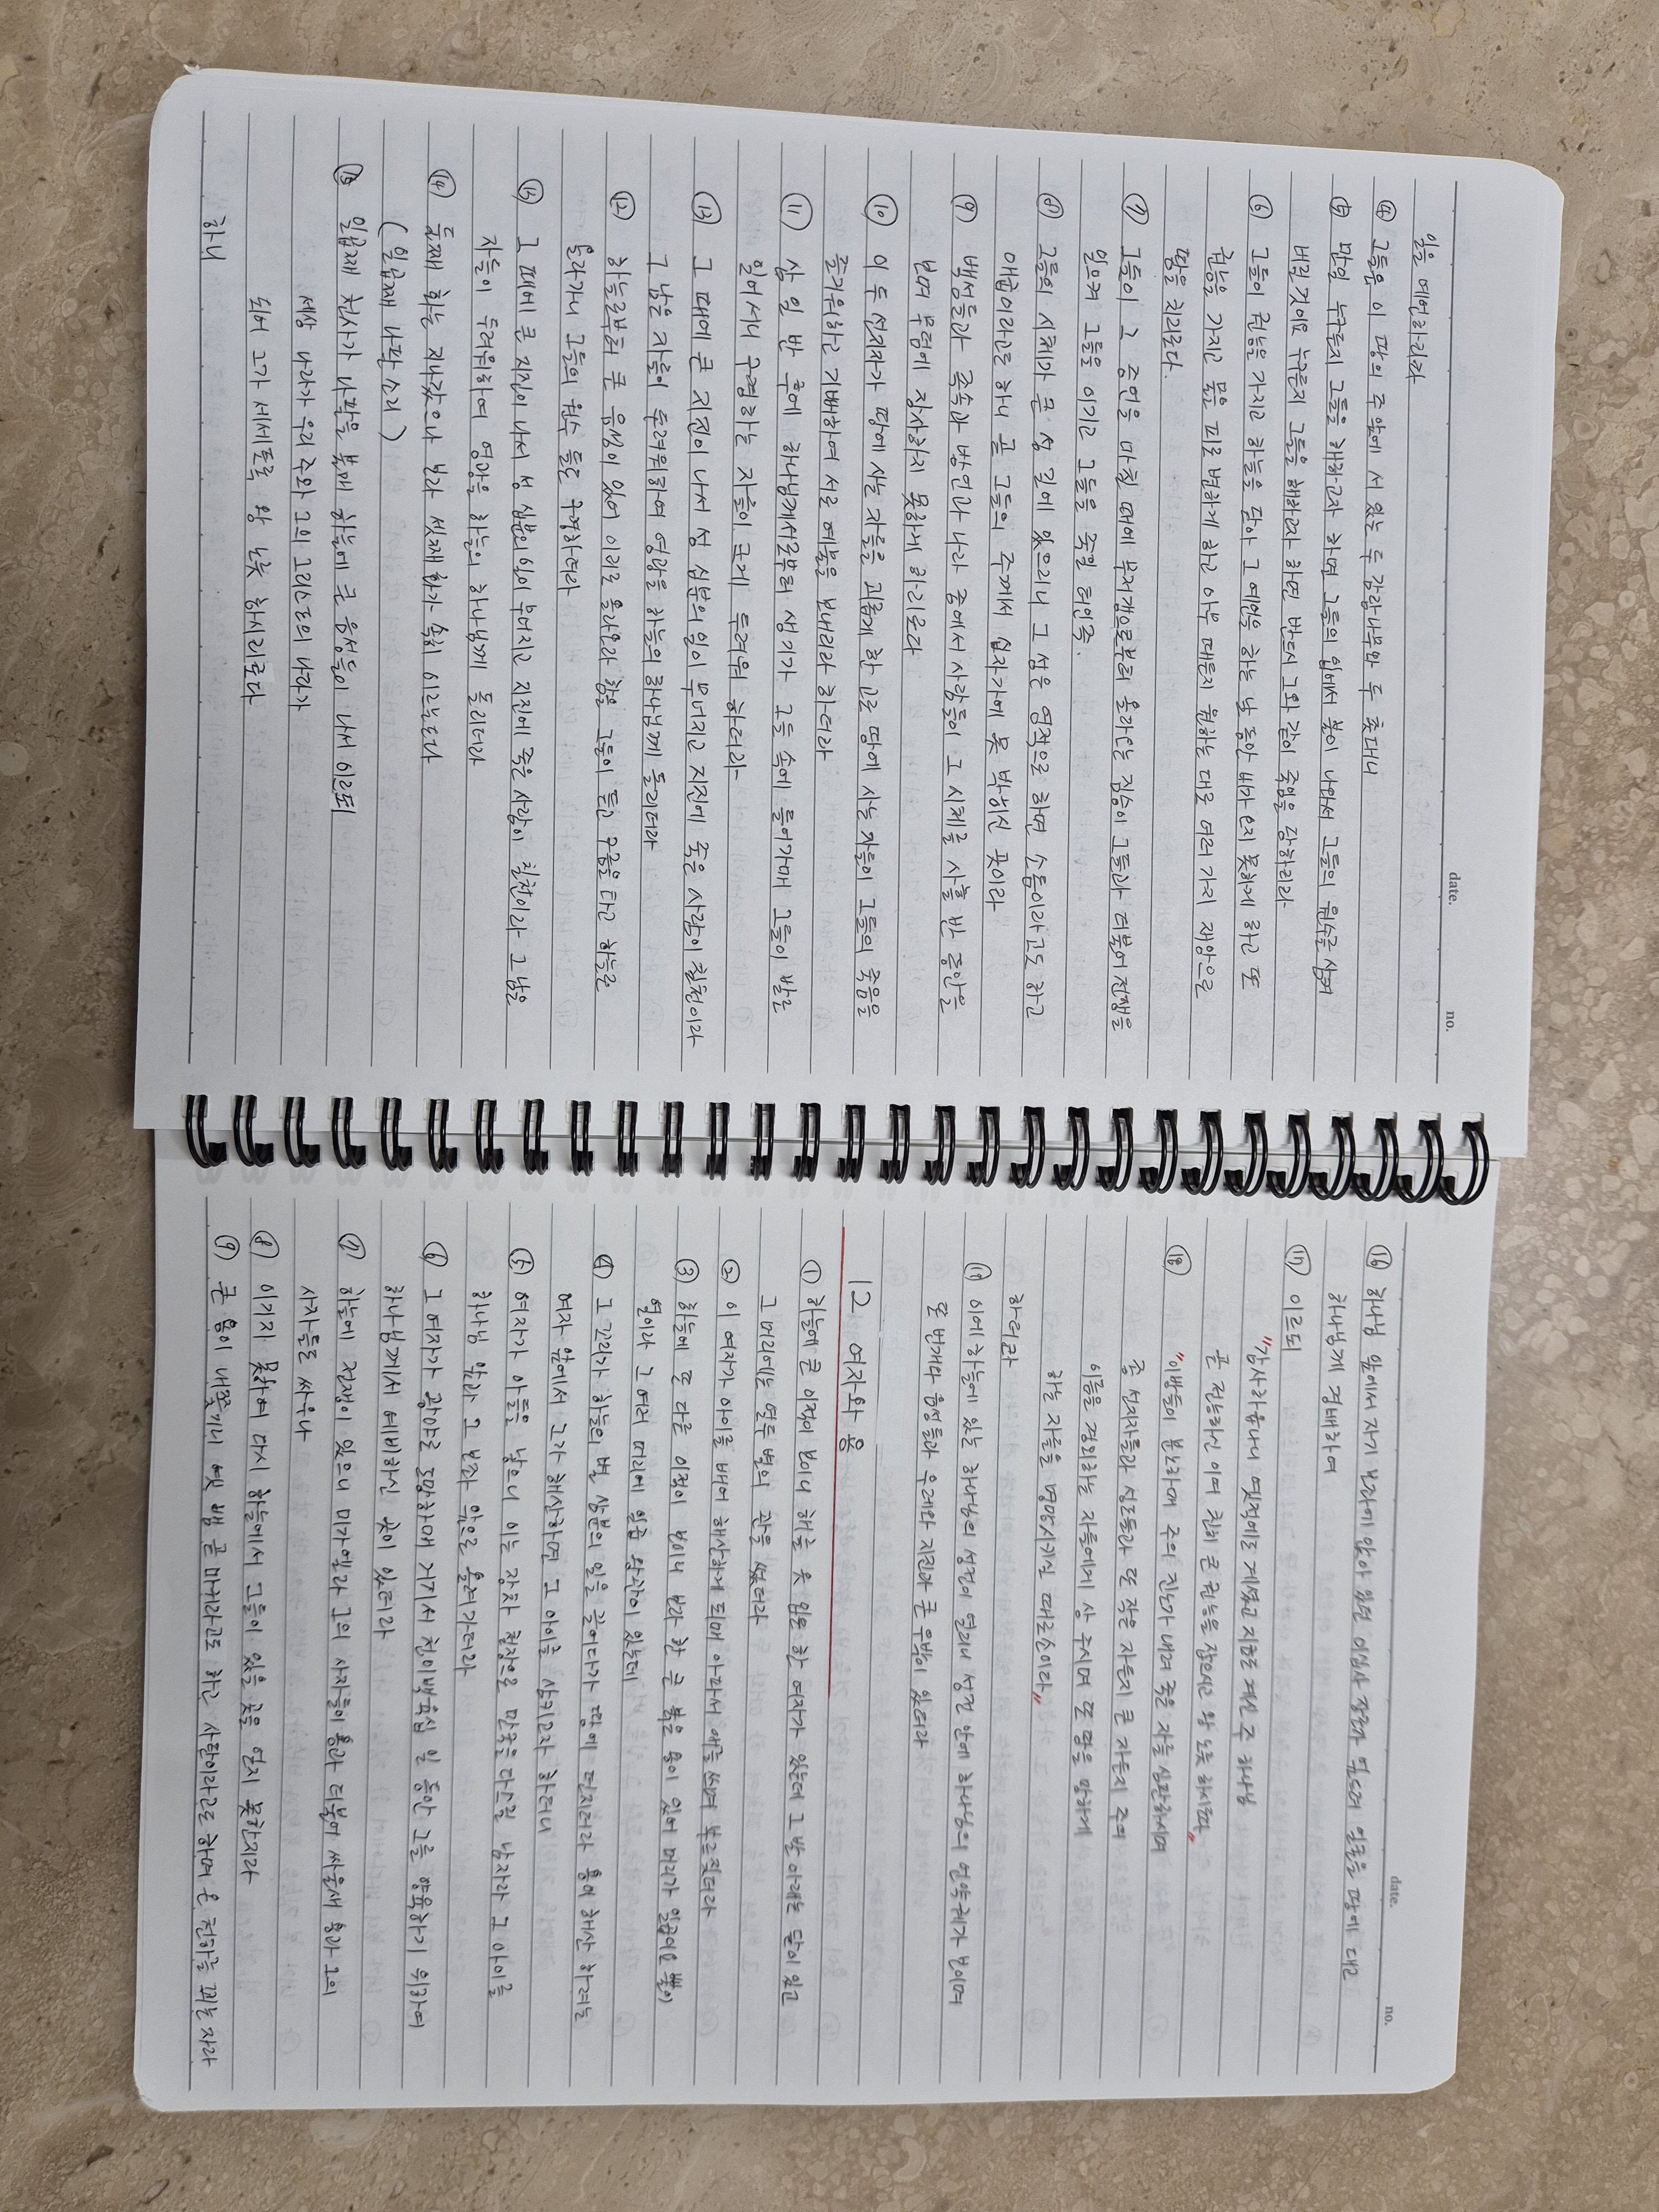 date. no.
일을 예언하리라
④ 그들은 이 땅의 주 앞에 서 있는 두 감람나무와 두 촛대니
⑤ 만일 누구든지 그들을 해하고자 하면 그들의 입에서 불이 나와서 그들의 원수를 삼켜
버릴 것이요 누구든지 그들을 해하고자 하면 반드시 그와 같이 죽임을 당하리라
⑥ 그들이 권능을 가지고 하늘을 닫아 그 예언을 하는 날 동안 비가 오지 못하게 하고 또
권능을 가지고 물을 피로 변하게 하고 아무 때든지 원하는 대로 여러 가지 재앙으로
땅을 치리로다.
⑦ 그들이 그 증언을 마칠 때에 무저갱으로부터 올라오는 짐승이 그들과 더불어 전쟁을
일으켜 그들을 이기고 그들을 죽일 터인즉.
⑧ 그들의 시체가 큰 성 길에 있으리니 그 성은 영적으로 하면 소돔이라고도 하고
애굽이라고도 하니 곧 그들의 주께서 십자가에 못 박히신 곳이라
⑨ 백성들과 족속과 방언과 나라 중에서 사람들이 그 시체를 사흘 반 동안을
보며 무덤에 장사하지 못하게 하리로다
⑩ 이 두 선지자가 땅에 사는 자들을 괴롭게 한 고로 땅에 사는 자들이 그들의 죽음을
즐거워하고 기뻐하여 서로 예물을 보내리라 하더라
⑪ 삼 일 반 후에 하나님께서로부터 생기가 그들 속에 들어가매 그들이 발로
일어서니 구경하는 자들이 크게 두려워 하더라
⑬ 그 때에 큰 지진이 나서 성 십분의 일이 무너지고 지진에 죽은 사람이 칠천이라
그 남은 자들이 두려워하여 영광을 하늘의 하나님께 돌리더라
⑫ 하늘로부터 큰 음성이 있어 이리로 올라오라 함을 그들이 듣고 구름을 타고 하늘로
올라가니 그들의 원수들도 구경하더라
⑬ 그 때에 큰 지진이 나서 성 십분의 일이 무너지고 지진에 죽은 사람이 칠천이라 그 남은
자들이 두려워하여 영광을 하늘의 하나님께 돌리더라
⑭ 둘째 화는 지나갔으나 보라 셋째 화가 속히 이르는도다
(일곱째 나팔 소리)
⑮ 일곱째 천사가 나팔을 불매 하늘에 큰 음성들이 나서 이르되
세상 나라가 우리 주와 그의 그리스도의 나라가
되어 그가 세세토록 왕 노릇 하시리로다
하니
date. no.
⑯ 하나님 앞에서 자기 보좌에 앉아 있던 이십사 장로가 엎드려 얼굴을 땅에 대고
하나님께 경배하여
⑰ 이르되
"감사하옵나니 옛적에도 계셨고 지금도 계신 주 하나님
곧 전능하신 이여 친히 큰 권능을 잡으시고 왕 노릇 하시도다"
⑱ "이방들이 분노하매 주의 진노가 내려 죽은 자를 심판하시며
종 선지자들과 성도들과 또 작은 자든지 큰 자든지 주의
이름을 경외하는 자들에게 상 주시며 또 땅을 망하게
하는 자들을 멸망시키실 때로소이다"
하더라
⑲ 이에 하늘에 있는 하나님의 성전이 열리니 성전 안에 하나님의 언약궤가 보이며
또 번개와 음성들과 우레와 지진과 큰 우박이 있더라
12 여자와 용
① 하늘에 큰 이적이 보이니 해를 옷 입은 한 여자가 있는데 그 발 아래에는 달이 있고
그 머리에는 열두 별의 관을 썼더라
② 이 여자가 아이를 배어 해산하게 되매 아파서 애를 쓰며 부르짖더라
③ 하늘에 또 다른 이적이 보이니 보라 한 큰 붉은 용이 있어 머리가 일곱이요 뿔이
열이라 그 여러 머리에 일곱 왕관이 있는데
④ 그 꼬리가 하늘의 별 삼분의 일을 끌어다가 땅에 던지더라 용이 해산 하려는
여자 앞에서 그가 해산하면 그 아이를 삼키고자 하더니
⑤ 여자가 아들을 낳으니 이는 장차 철장으로 만국을 다스릴 남자라 그 아이를
하나님 앞과 그 보좌 앞으로 올려가더라
⑥ 그 여자가 광야로 도망하매 거기서 천이백육십 일 동안 그를 양육하기 위하여
하나님께서 예비하신 곳이 있더라
⑦ 하늘에 전쟁이 있으니 미가엘과 그의 사자들이 용과 더불어 싸울새 용과 그의
사자들도 싸우나
⑧ 이기지 못하여 다시 하늘에서 그들이 있을 곳을 얻지 못한지라
⑨ 큰 용이 내쫓기니 옛 뱀 곧 마귀라고도 하고 사탄이라고도 하며 온 천하를 꾀는 자라